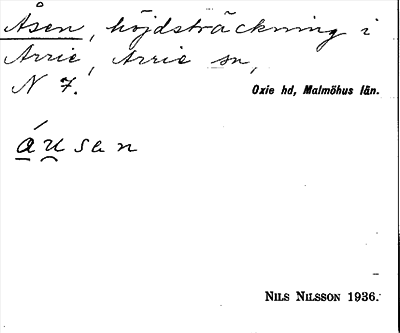 Åsen, höjdsträckning i
Arrie, Arrie sn,
N 7.
Oxie hd, Malmöhus län.
áu̯sen
NILS NILSSON 1936.